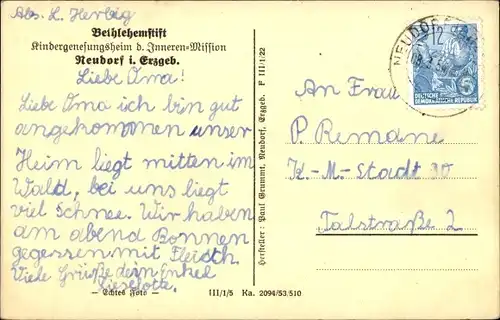 Abs. L. Herbig
Bethlehemstift
Kindergenesungsheim d. Inneren-Mission
Neudorf i. Erzgeb.
Liebe Oma!
Liebe Oma ich bin gut
angekommen unser
Heim liegt mitten im
Wald, bei uns liegt
viel Schnee. Wir haben
am abend Bonnen
gegessen mit Fleisch.
Viele Grüße dein Enkel
Lieselotte.
— Echtes Foto —
III/1/5 Ka. 2094/53/510
Hersteller: Paul Grummt, Neudorf, Erzgeb. F III/1/22
NEUDORF
12
5
DEUTSCHE
DEMOKRATISCHE REPUBLIK
An Frau
P. Remane
K-M-Stadt 30
Talstraße 2